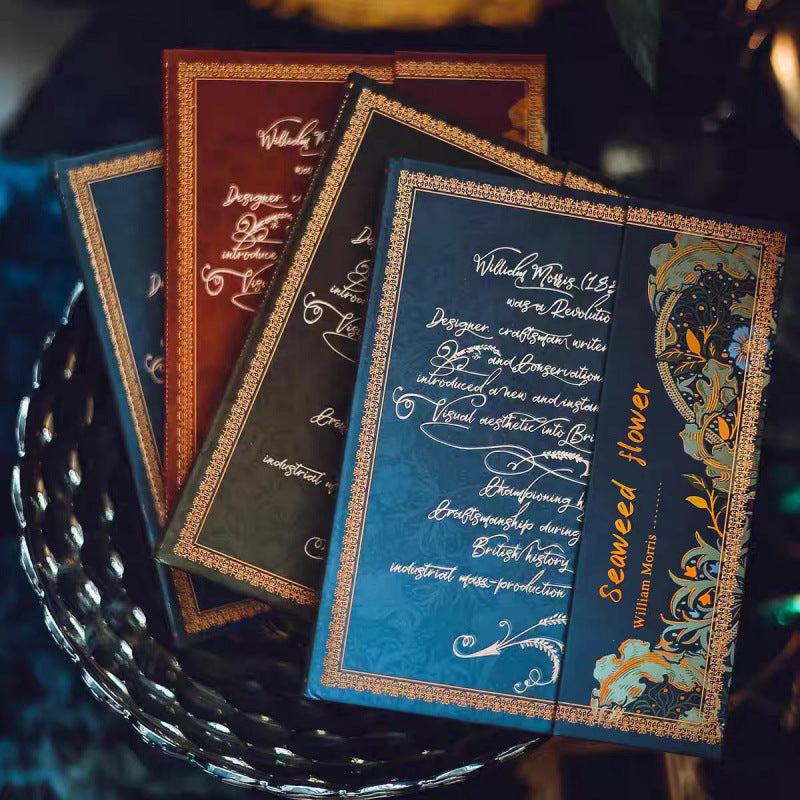 William Morris (18
was a Revolutio
Designer, craftsman writer
and Conservation
introduced a new and instan
Visual aesthetic into Bri
Championing h
Craftsmanship during
British history
industrial mass-production
Seaweed flower
William Morris ......
William M
was
Designer, c
introduce
Visual
introd
Visu
industrial m